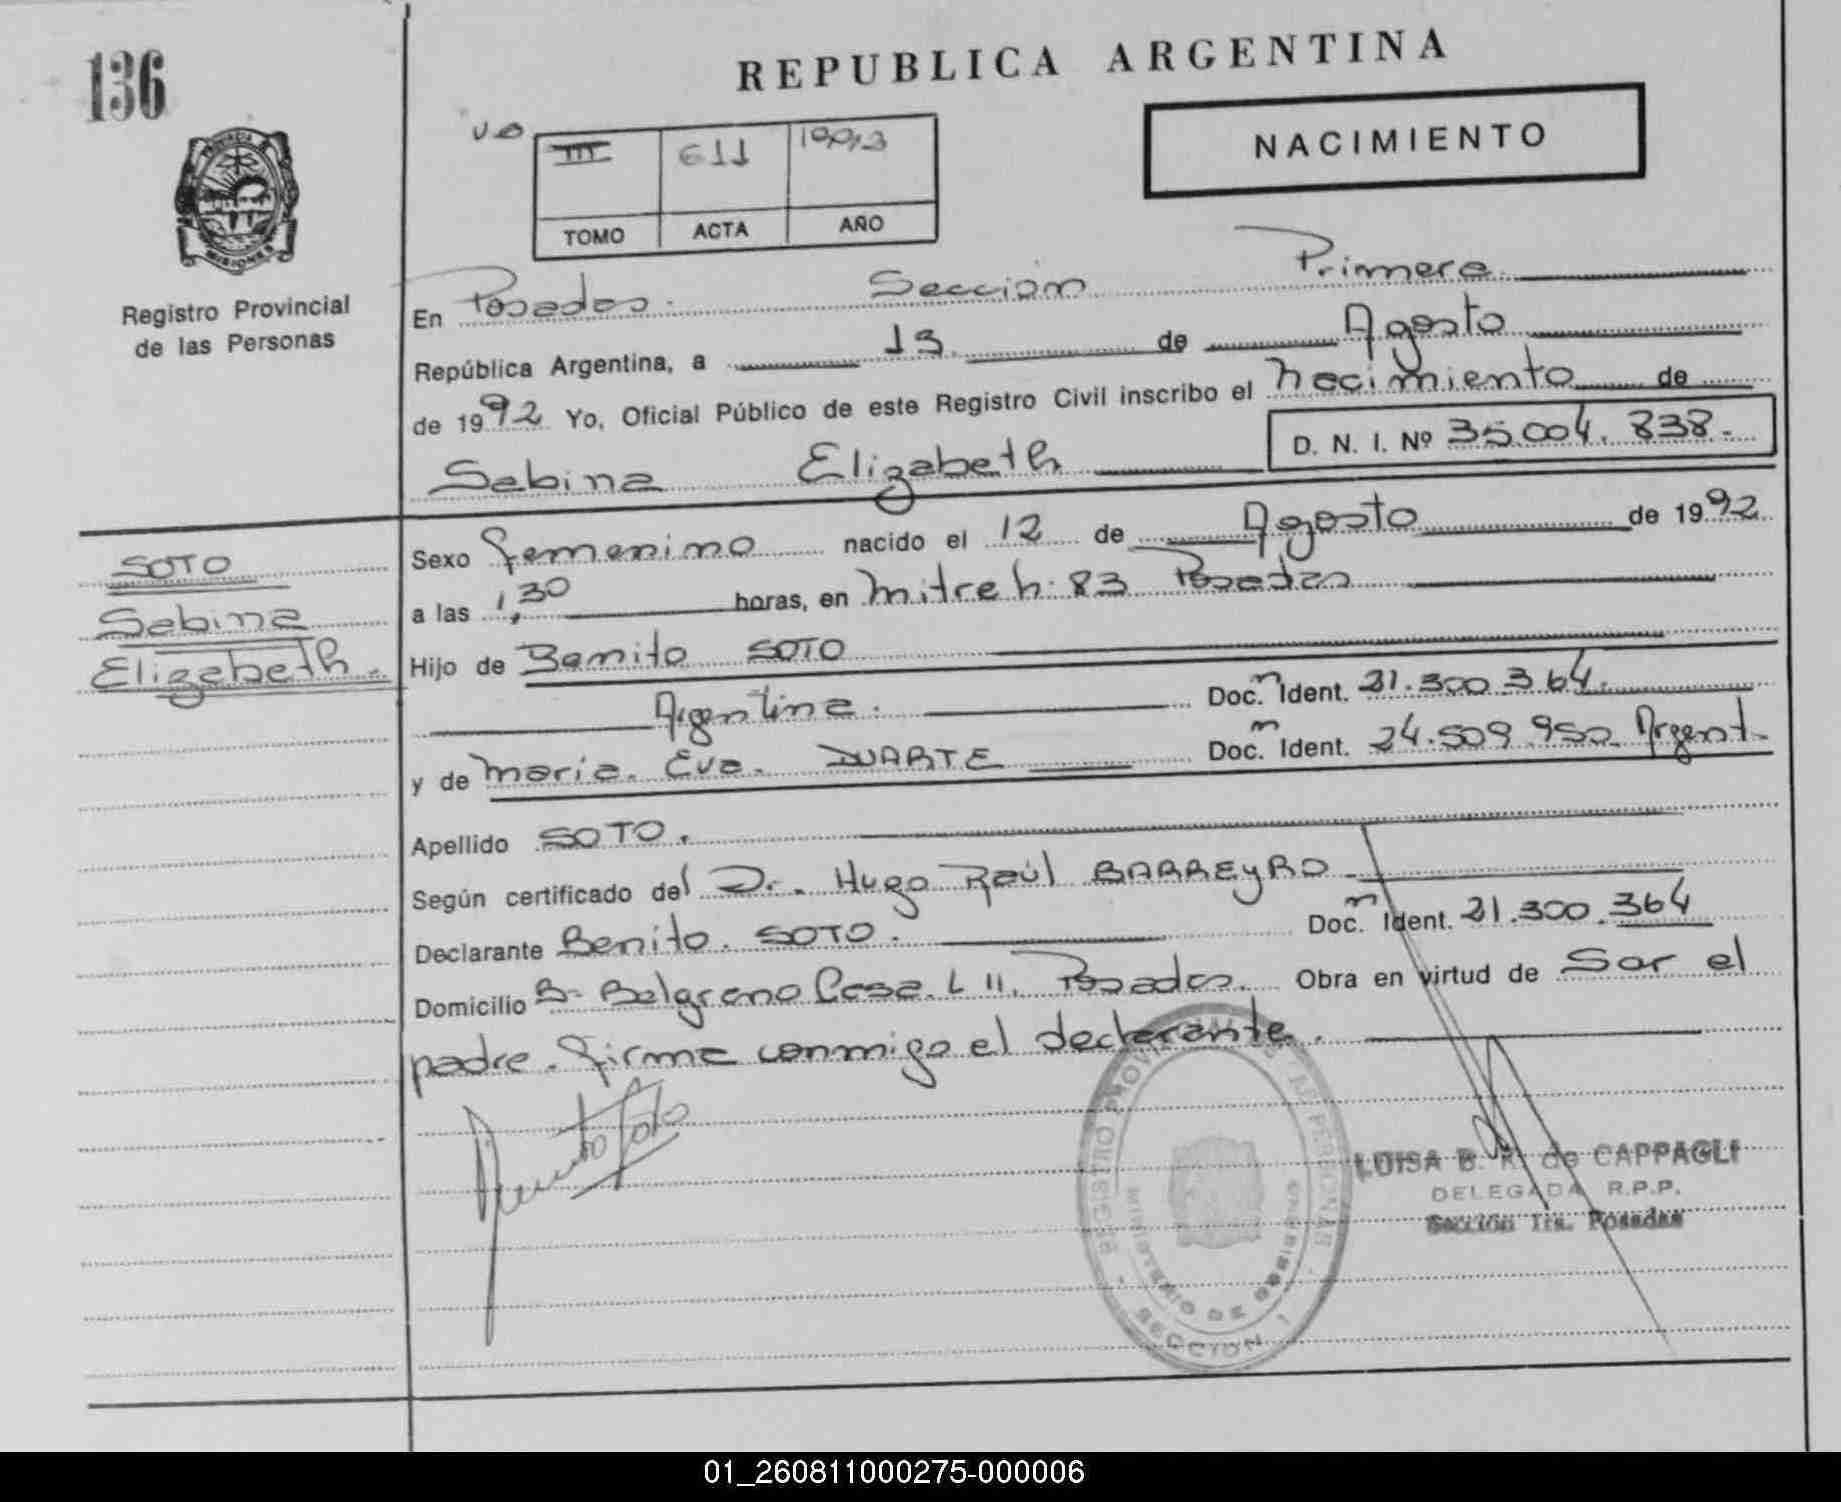 136
REPUBLICA ARGENTINA
NACIMIENTO
III 611
TOMO ACTA AÑO
PROVINCIA
MISIONES
Registro Provincial
de las Personas
En Posadas. Seccion Primera
República Argentina, a 13 de Agosto
de 1992 Yo, Oficial Público de este Registro Civil inscribo el nacimiento de
D. N. I. Nº 35.004.838.-
Sabina Elizabeth
SOTO
Sabina
Elizabeth.
Sexo femenino nacido el 12 de Agosto de 1992
a las 1,30 horas, en mitre h. 83 Posadas
Hijo de Benito SOTO
Argentina. Doc. Ident. 21.300.364.
y de maria. Eva. DUARTE Doc. Ident. 24.509.950 Argent.
Apellido SOTO.
Según certificado del Dr. Hugo Raúl BARREYRO
Declarante Benito. SOTO. Doc. Ident. 21.300.364
Domicilio Bº Belgrano Casa. L 11. Posadas. Obra en virtud de Sor el
padre. firma conmigo el declarante.
REGISTRO PROVINCIAL DE LAS PERSONAS
MINISTERIO DE GOBIERNO
SECCION 1
LUISA B. R. de CAPPAGLI
DELEGADA R.P.P.
Sección 1ra. Posadas
01_260811000275-000006